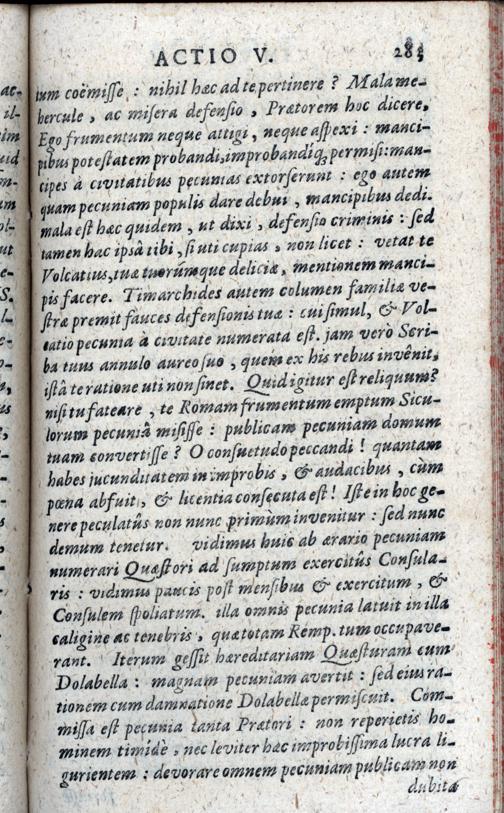 ACTIO V. 285
tum coëmisse : nihil hæc ad te pertinere ? Mala me-
hercule , ac misera defensio , Prætorem hoc dicere,
Ego frumentum neque attigi , neque aspexi : manci-
pibus potestatem probandi, improbandíq; permisi: man-
cipes à civitatibus pecunias extorserunt : ego autem
quam pecuniam populis dare debui , mancipibus dedi.
mala est hæc quidem , ut dixi , defensio criminis : sed
tamen hac ipsâ tibi , si uti cupias , non licet : vetat te
Volcatius, tuæ tuorúmque deliciæ, mentionem manci-
pis facere. Timarchides autem columen familiæ ve-
stræ premit fauces defensionis tuæ : cui simul, & Vol-
catio pecunia à civitate numerata est. jam verò Scri-
ba tuus annulo aureo suo , quem ex his rebus invênit,
istâ te ratione uti non sinet. Quid igitur est reliquum?
nisi tu fateare , te Romam frumentum emptum Sicu-
lorum pecuniâ misisse : publicam pecuniam domum
tuam convertisse ? O consuetudo peccandi ! quantam
habes jucunditatem in improbis , & audacibus , cùm
pœna abfuit , & licentia consecuta est ! Iste in hoc ge-
nere peculatûs non nunc primùm invenitur : sed nunc
demum tenetur. vidimus huic ab ærario pecuniam
numerari Quæstori ad sumptum exercitûs Consula-
ris : vidimus paucis post mensibus & exercitum , &
Consulem spoliatum. illa omnis pecunia latuit in illa
caligine ac tenebris , quæ totam Remp. tum occupave-
rant. Iterum gessit hæreditariam Quæsturam cum
Dolabella : magnam pecuniam avertit : sed ejus ra-
tionem cum damnatione Dolabellæ permiscuit. Com-
missa est pecunia tanta Prætori : non reperietis ho-
minem timidè , nec leviter hæc improbissima lucra li-
gurientem : devorare omnem pecuniam publicam non
dubita